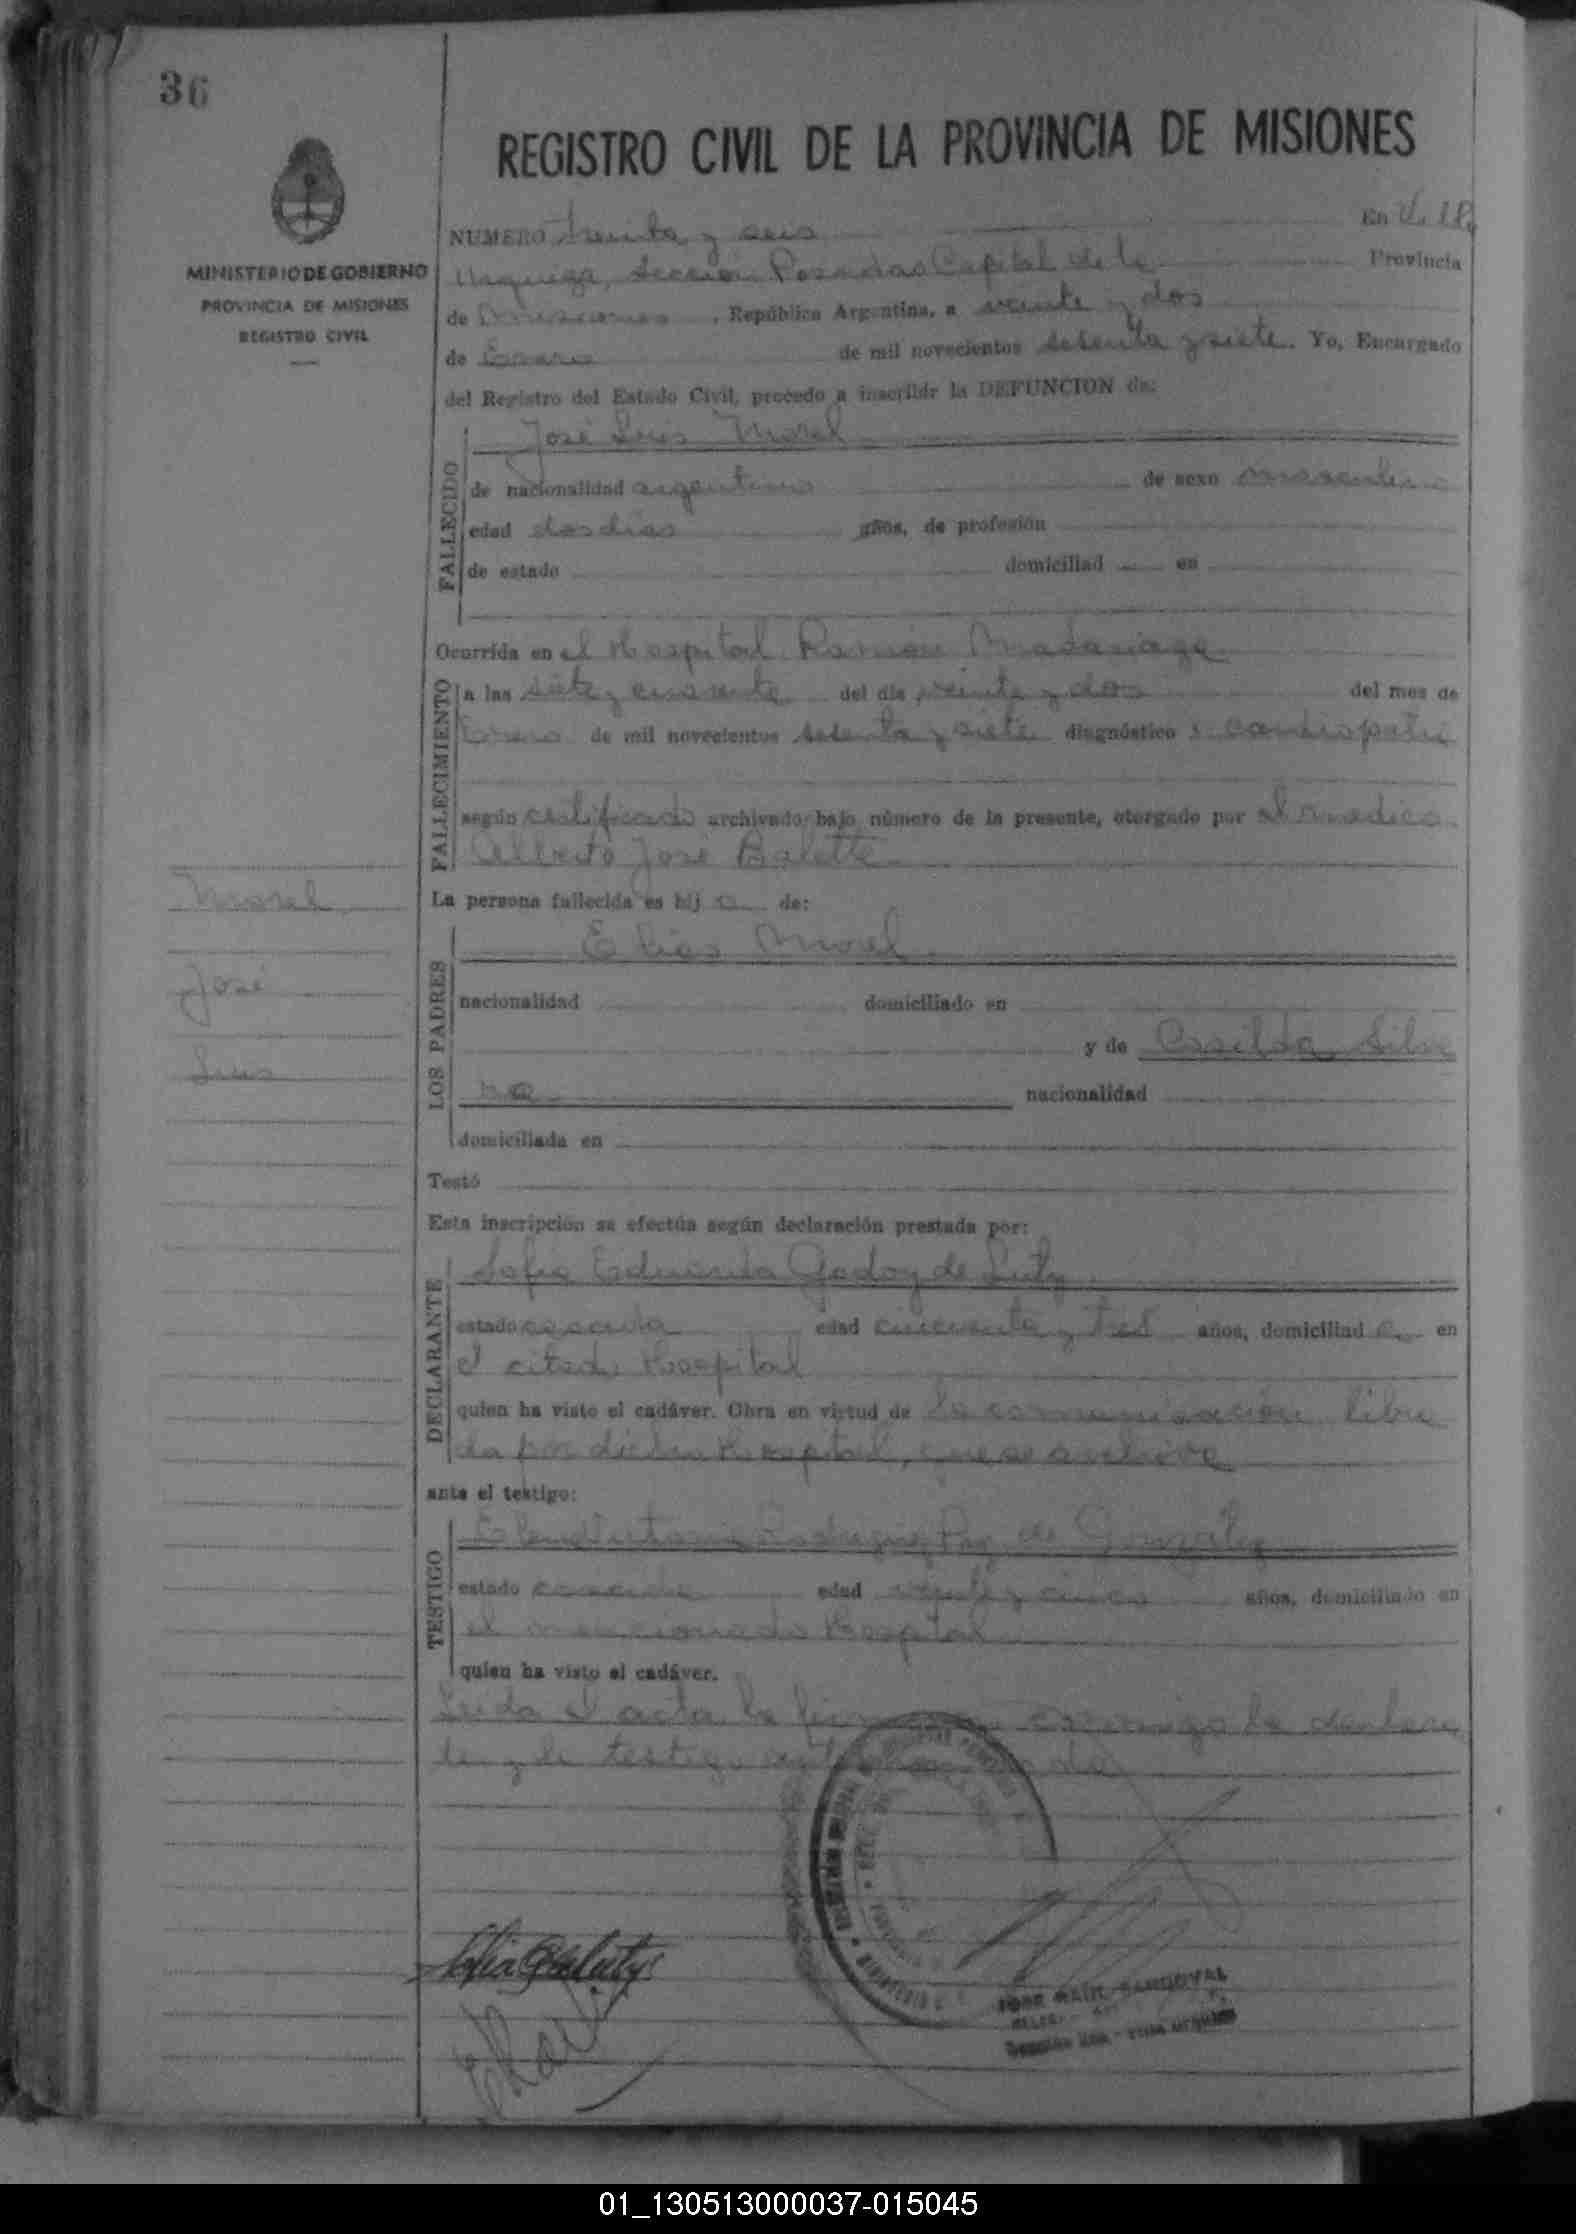 36
REGISTRO CIVIL DE LA PROVINCIA DE MISIONES
MINISTERIO DE GOBIERNO
PROVINCIA DE MISIONES
REGISTRO CIVIL
NUMERO treinta y seis En Villa
Urquiza, Sección Posadas Capital de la Provincia
de Misiones, República Argentina, a veinte y dos
de Enero de mil novecientos setenta y siete. Yo, Encargado
del Registro del Estado Civil, procedo a inscribir la DEFUNCION de:
FALLECIDO
José Luis Morel
de nacionalidad argentino de sexo masculino
edad dos días años, de profesión
de estado domiciliad en
Ocurrida en el Hospital Ramón Madariaga
FALLECIMIENTO
a las siete y cuarenta del día veinte y dos del mes de
Enero de mil novecientos setenta y siete diagnóstico: cardiopatí
según certificado archivado bajo número de la presente, otorgado por el medico
Alberto José
La persona fallecida es hij o de:
Morel
José
Luis
LOS PADRES
Elias Morel
nacionalidad domiciliado en
y de Casilda Silve
ra nacionalidad
domiciliada en
Testó
Esta inscripción se efectúa según declaración prestada por:
DECLARANTE
Sofia Eduarda Godoy de Lutz
estado casada edad cincuenta y tres años, domiciliad a en
el citado Hospital
quien ha visto el cadáver. Obra en virtud de la comunicación libra
da por dicho Hospital, que se archiva
ante el testigo:
TESTIGO
de González
estado casada edad veinte y cinco años, domiciliado en
el mencionado Hospital
quien ha visto el cadáver.
Leida el acta la conmigo la declaran
te y la testigo
JOSE RAUL SANDOVAL
01_130513000037-015045